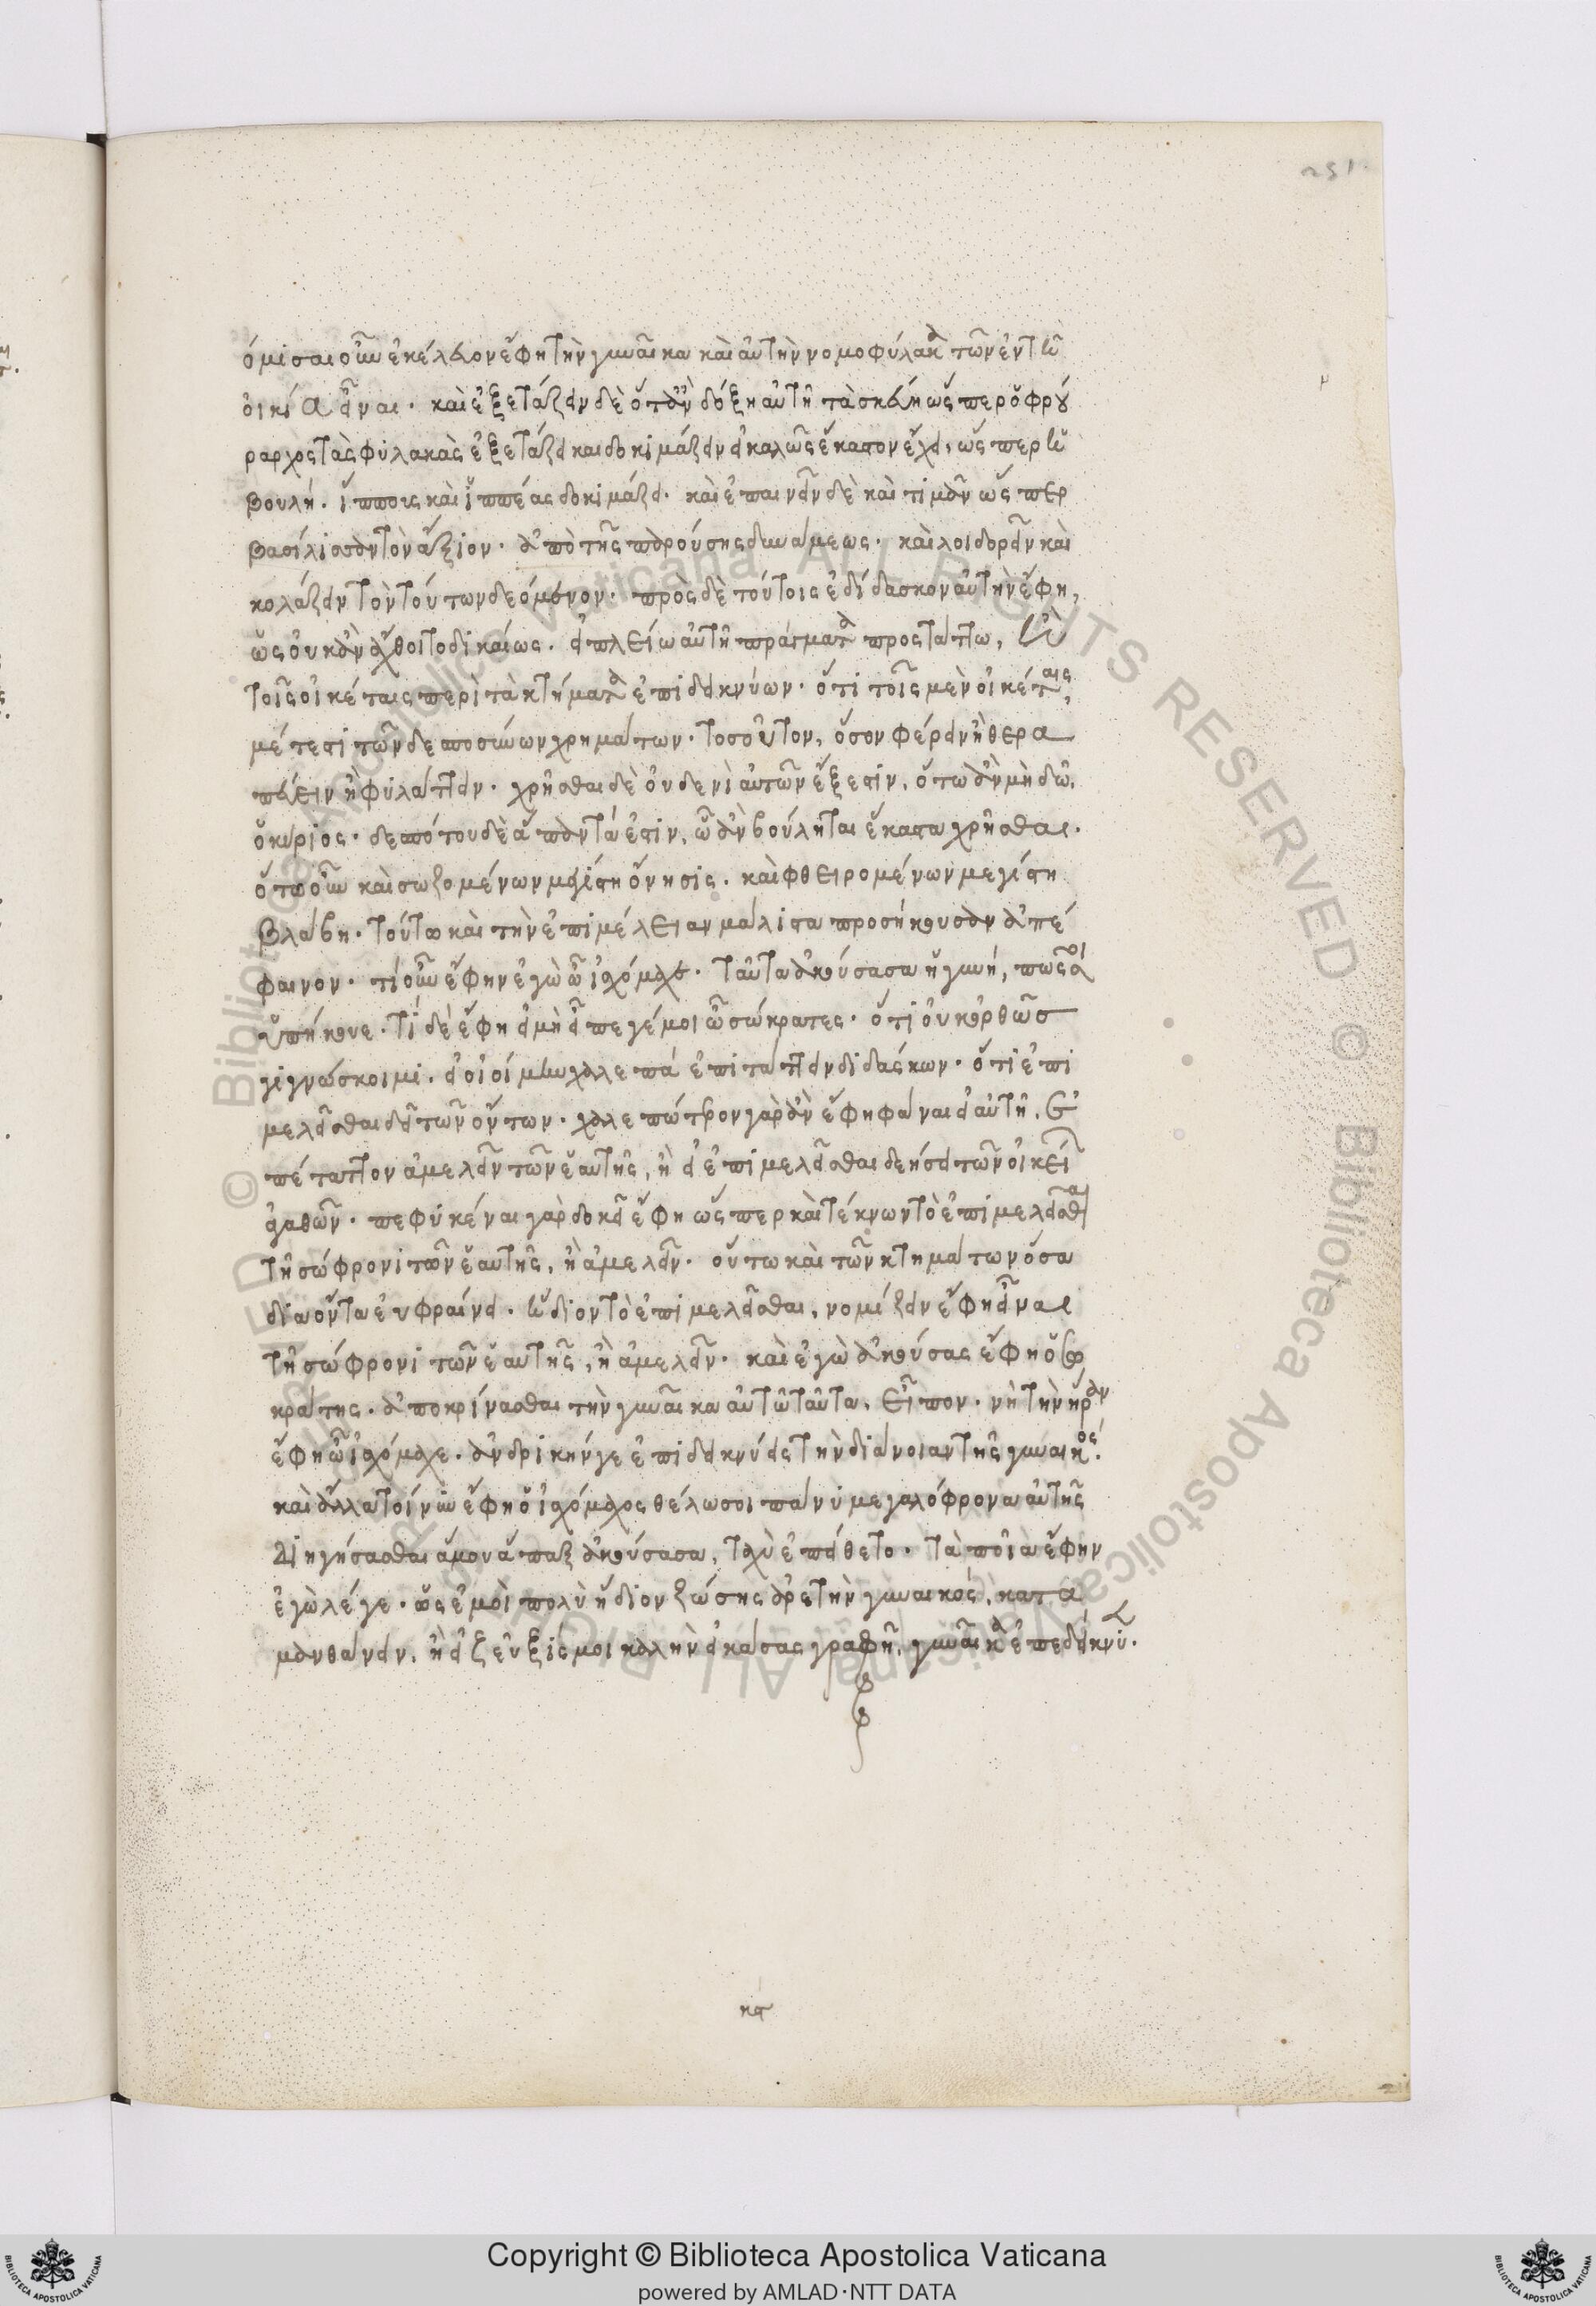 251
όμισαι οὖν ἐκέλευον ἔφη τὴν γυναῖκα καὶ αὐτὴν νομοφύλακα τῶν ἐν τῇ
οἰκία εἶναι. καὶ ἐξετάζειν δὲ ὅταν δόξη αὐτῆ τὰ σκεύη ὥσπερ ὁ φρού
ραρχος τὰς φύλακὰς ἐξετάζει καὶ δοκιμάζειν εἰ καλῶς ἕκαστον ἔχει, ὥσπερ ἡ
βουλή. ἵππους καὶ ἱππέας δοκιμάζει. καὶ ἐπαινεῖν δὲ καὶ τιμᾶν ὥσπερ
βασίλισσαν τὸν ἄξιον. ἀπὸ τῆς παρούσης δυνάμεως. καὶ λοιδορεῖν καὶ
κολάζειν τὸν τούτων δεόμενον. πρὸς δὲ τούτοις ἐδίδασκον αὐτὴν ἔφη,
ὡς οὐκ ἂν ἄχθοιτο δικαίως. εἰ πλείω αὐτῆ πράγματα προστάττω, ἢ
τοῖς οἰκέταις περὶ τὰ κτήματα ἐπιδεικνύων. ὅτι τοῖς μὲν οἰκέταις
μέτεστι τῶν δεσποσύνων χρημάτων. τοσοῦτον, ὅσον φέρειν ἢ θερα
πεύειν ἢ φυλάττειν. χρῆσθαι δὲ οὐδενὶ αὐτῶν ἔξεστιν, ὅτω ἂν μὴ δῶ,
ὁ κύριος. δεσπότου δὲ ἅπαντά ἐστιν, ᾧ ἂν βούληται ἕκαστα χρῆσθαι.
ὅτω οὖν καὶ σωζομένων μεγίστη ὄνησις. καὶ φθειρομένων μεγίστη
βλάβη. τούτω καὶ τὴν ἐπιμέλειαν μάλιστα προσήκουσαν ἀπέ
φαινον. τί οὖν ἔφην ἐγὼ ὦ ἰσχόμαχε. ταῦτα ἀκούσασα ἡ γυνή, πώς σοι
ὑπήκουε. τί δὲ ἔφη εἰ μὴ εἶπε γέ μοι ὦ σώκρατες. ὅτι οὐκ ὀρθῶς
γιγνώσκοιμι. εἰ οἰοίμην χαλεπά ἐπιτάττειν διδάσκων. ὅτι ἐπι
μελεῖσθαι δεῖ τῶν ὄντων. χαλεπώτερον γὰρ ἂν ἔφη φάναι εἰ αὐτῆ, ἐ
πέταττον ἀμελεῖν τῶν ἑαυτῆς, ἢ εἰ ἐπιμελεῖσθαι δεήσει τῶν οἰκείων
ἀγαθῶν. πεφυκέναι γὰρ δοκεῖ ἔφη ὥσπερ καὶ τέκνων τὸ ἐπιμελεῖσθαι
τῆ σώφρονι τῶν ἑαυτῆς, ἢ ἀμελεῖν. οὕτω καὶ τῶν κτημάτων ὅσα
δια ὄντα εὐφραίνει. ἥδιον τὸ ἐπιμελεῖσθαι, νομίζειν ἔφη εἶναι
τῆ σώφρονι τῶν ἑαυτῆς, ἢ ἀμελεῖν. καὶ ἐγὼ ἀκούσας ἔφη ὁ σω
κράτης. ἀποκρίνασθαι τὴν γυναῖκα αὐτῶ ταῦτα, εἶπον. νὴ τὴν ἥραν
ἔφη ὦ ἰσχόμαχε. ἀνδρικήν γε ἐπιδεικνύεις τὴν διάνοιαν τῆς γυναικός.
καὶ ἄλλα τοίνυν ἔφη ὁ ἰσχόμαχος θέλω σοι πάνυ μεγαλόφρονα αὐτῆς
διηγήσασθαι ἅ μου ἅπαξ ἀκούσασα, ταχὺ ἐπείθετο. τὰ ποῖα ἔφην
ἐγὼ λέγε. ὡς ἐμοὶ πολὺ ἥδιον ζώσης ἀρετὴν γυναικός, κατα
μανθάνειν, ἢ εἰ ζεῦξίς μοι καλὴν εἰκάσας γραφῆ, γυναῖκα ἐπεδείκνυ.
κα
Copyright © Biblioteca Apostolica Vaticana
powered by AMLAD·NTT DATA